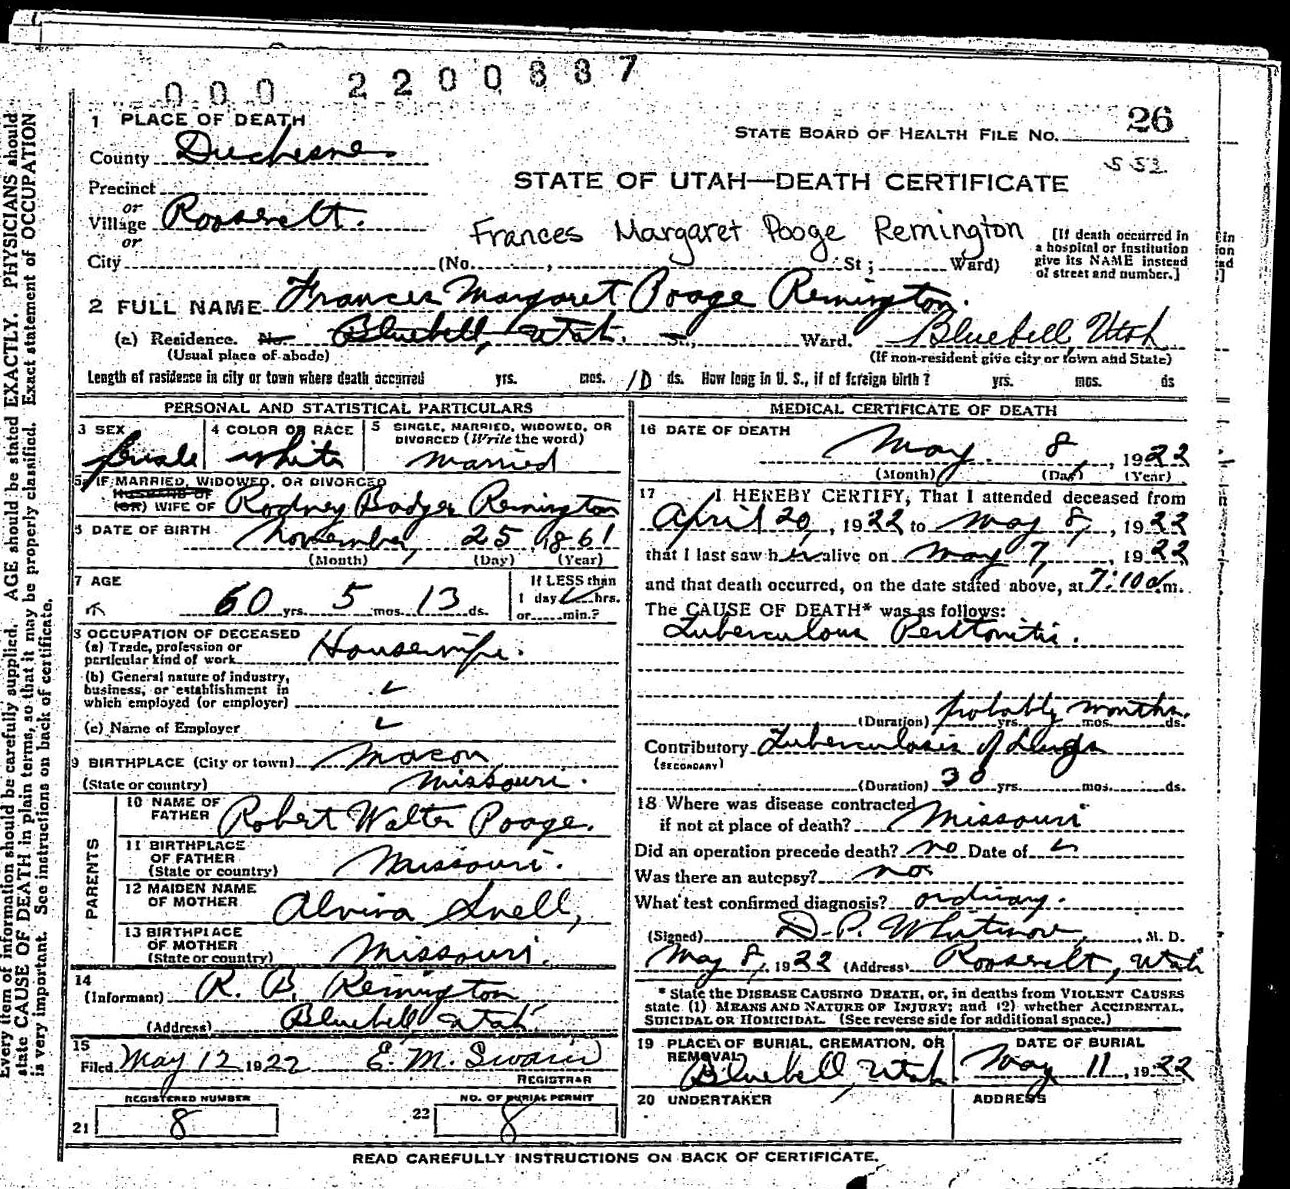 000 2200887
1 PLACE OF DEATH
STATE BOARD OF HEALTH FILE NO. 26
County Duchesne
553
Precinct
STATE OF UTAH—DEATH CERTIFICATE
or
Village Roosevelt.
or
Frances Margaret Pooge Remington
[If death occurred in
a hospital or institution
give its NAME instead
of street and number.]
City (No. , St; Ward)
2 FULL NAME Frances Margaret Pooge Remington.
(a) Residence. No. Bluebell, Utah. St., Ward. Bluebell, Utah
(Usual place of abode) (If non-resident give city or town and State)
Length of residence in city or town where death occurred yrs. mos. 10 ds. How long in U. S., if of foreign birth? yrs. mos. ds
PERSONAL AND STATISTICAL PARTICULARS
3 SEX 4 COLOR OR RACE 5 SINGLE, MARRIED, WIDOWED, OR
DIVORCED (Write the word)
female white Married
5a IF MARRIED, WIDOWED, OR DIVORCED
HUSBAND OF
(OR) WIFE OF Rodney Badger Remington
6 DATE OF BIRTH November, 25, 1861
(Month) (Day) (Year)
7 AGE
60 yrs. 5 mos. 13 ds.
If LESS than
1 day hrs.
or min.?
8 OCCUPATION OF DECEASED
(a) Trade, profession or
particular kind of work Housewife.
(b) General nature of industry,
business, or establishment in
which employed (or employer)
(c) Name of Employer
9 BIRTHPLACE (City or town) Macon,
(State or country) Missouri.
PARENTS
10 NAME OF
FATHER Robert Walter Pooge.
11 BIRTHPLACE
OF FATHER
(State or country) Missouri.
12 MAIDEN NAME
OF MOTHER Alvira Snell,
13 BIRTHPLACE
OF MOTHER
(State or country) Missouri.
14
(Informant) R. B. Remington
(Address) Bluebell, Utah.
15
Filed May 12 1922 E. M. Swain
REGISTRAR
REGISTERED NUMBER
21 8
NO. OF BURIAL PERMIT
22 8
MEDICAL CERTIFICATE OF DEATH
16 DATE OF DEATH
May. 8, 1922
(Month) (Day) (Year)
17 I HEREBY CERTIFY, That I attended deceased from
April 20, 1922 to May 8, 1922
that I last saw her alive on May 7, 1922
and that death occurred, on the date stated above, at 7:10 a.m.
The CAUSE OF DEATH* was as follows:
Tuberculous Peritonitis.
probably months.
(Duration) yrs. mos. ds.
Contributory Tuberculosis of Lungs
(SECONDARY)
(Duration) 30 yrs. mos. ds.
18 Where was disease contracted
if not at place of death? Missouri
Did an operation precede death? no Date of
Was there an autopsy? no
What test confirmed diagnosis? ordinary.
(Signed) D. P. Whitmore, M. D.
May 8, 1922 (Address) Roosevelt, Utah
* State the DISEASE CAUSING DEATH, or, in deaths from VIOLENT CAUSES
state (1) MEANS AND NATURE OF INJURY; and (2) whether ACCIDENTAL,
SUICIDAL OR HOMICIDAL. (See reverse side for additional space.)
19 PLACE OF BURIAL, CREMATION, OR
REMOVAL
Bluebell, Utah
DATE OF BURIAL
May 11, 1922
20 UNDERTAKER ADDRESS
READ CAREFULLY INSTRUCTIONS ON BACK OF CERTIFICATE.
Every item of information should be carefully supplied. AGE should be stated EXACTLY. PHYSICIANS should
state CAUSE OF DEATH in plain terms, so that it may be properly classified. Exact statement of OCCUPATION
is very important. See instructions on back of certificate.